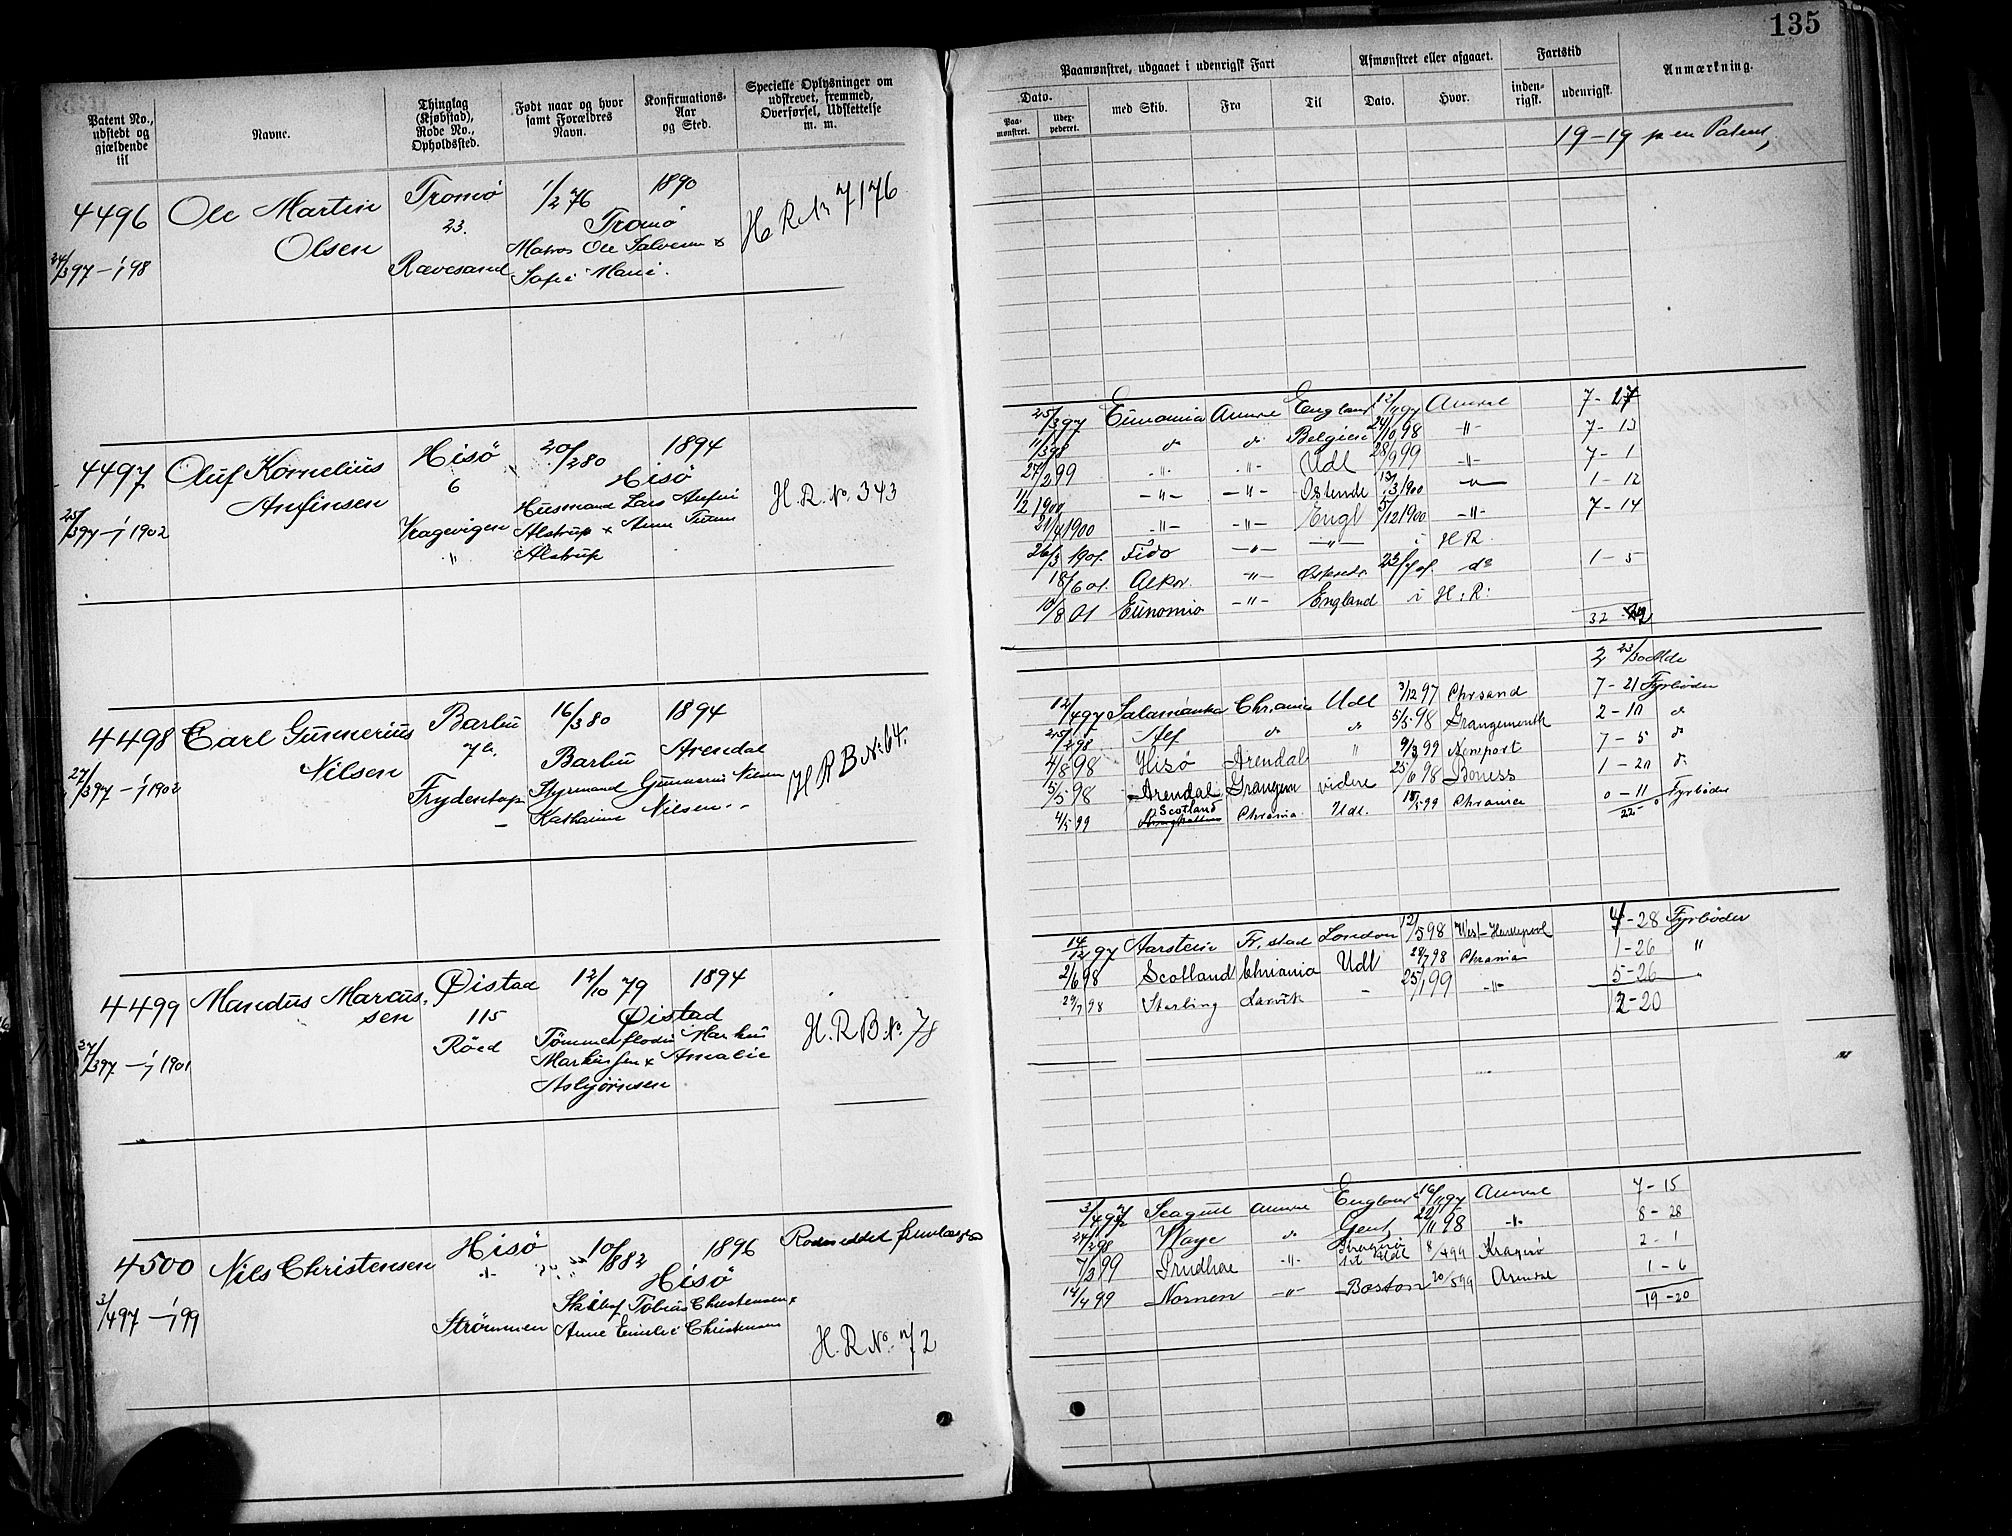 135
Patent No., udstedt og gjældende til
Navne.
Thinglag (Kjøbstad), Rode No., Opholdssted.
Født naar og hvor samt Forældres Navn.
Konfirmations-Aar og Sted.
Specielle Oplysninger om udskrevet, fremmed, Overførsel, Udslettelse m. m.
Paamønstret, udgaaet i udenrigsk Fart
Dato.
Paa-mønstret.
Udex-pederet.
med Skib.
Fra
Til
Afmønstret eller afgaaet.
Dato.
Hvor.
Fartstid
inden-rigsk.
udenrigsk.
Anmærkning.
19-19 p en Patent,
4496 Ole Martin Tromø 1/2 76 1890
Olsen 23. Tromø H R № 7176
24/3 97 - 1/1 98 Rævesand Matros Ole Salvesen &
Sofie Marie.
4497 Oluf Kornelius Hisø 20/2 80 1894
Anfinsen 6 Hisø
25/3 97 - 1/1 1902 Kragevigen Husmand Lars Anfin H. R. No. 343
" Alstrup & Anne
Alstrup
25/3 97 Eunomia England 12/11 97 7-17
11/3 98 do do Belgien 24/10 98 -"- 7-13
27/2 99 -"- -"- Udl 28/9 99 -"- 7-1
1/2 1900 -"- -"- Ostende 13/3 1900 -"- 1-12
21/4 1900 -"- -"- Engl 5/12 1900 -"- 7-14
26/3 1901. Fido -"- -"- i H R.
18/6 01. Alkor. -"- 23/7 01. do 1-5
10/8 01 Eunomia -"- England i H. R.
32
4498 Carl Gunnerius Barbu 16/3 80 1894
Nilsen 7b. Barbu Arendal H R B № 64.
27/3 97 - 1/1 1902 Frydenstap Styrmand Gunnerius Nilsen
- Kathrine Nilsen
2 23/30 Mdr
12/4 97 Salamanka Chr.ania Udl 3/12 97 Chrsand 7-21 Fyrbøder
25/2 98 Alf do do 5/5 98 Grangemouth 2-10 do
4/8 98 Hisø Arendal " 9/3 99 Newport 7-5 do
5/5 98 Arendal Grangem videre 25/6 98 Boness 1-20 do
4/5 99 Scotland Chrania. Udl. 15/5 99 Chrania 0-11 Fyrbøder
22-0
4499 Mandus Marcus- Øistad 12/10 79 1894
sen 115 Øistad
27/3 97 - 1/1 1901 Røed Tømmerfløder Markus H. R B. № 78
Markussen & Amalie
Asbjørnsen
14/12 97 Aarstein Fr.stad London 12/5 98 West-Hartlepool 4-28 Fyrbøder
2/6 98 Scotland Chriania Udl 28/7 98 Chrania 1-26 "
29/7 98 Sterling Larvik - 25/1 99 -"- 5-26
12-20
4500 Nils Christensen Hisø 10/8 82 1896
Hisø
3/4 97 - 1/1 99 Tobias Christensen &
Strømmen Anne Emilie Christensen
H. R No. 72
3/4 97 Seagull England 16/11 97 7-15
24/2 98 Waye do Gent, 22/11 98 -"- 8-28
7/2 99 Prudhoe -"- Udl 8/4 99 Kragerø 2-1
14/4 99 Nornen -"- Boston 20/5 99 Arendal 1-6
19-20